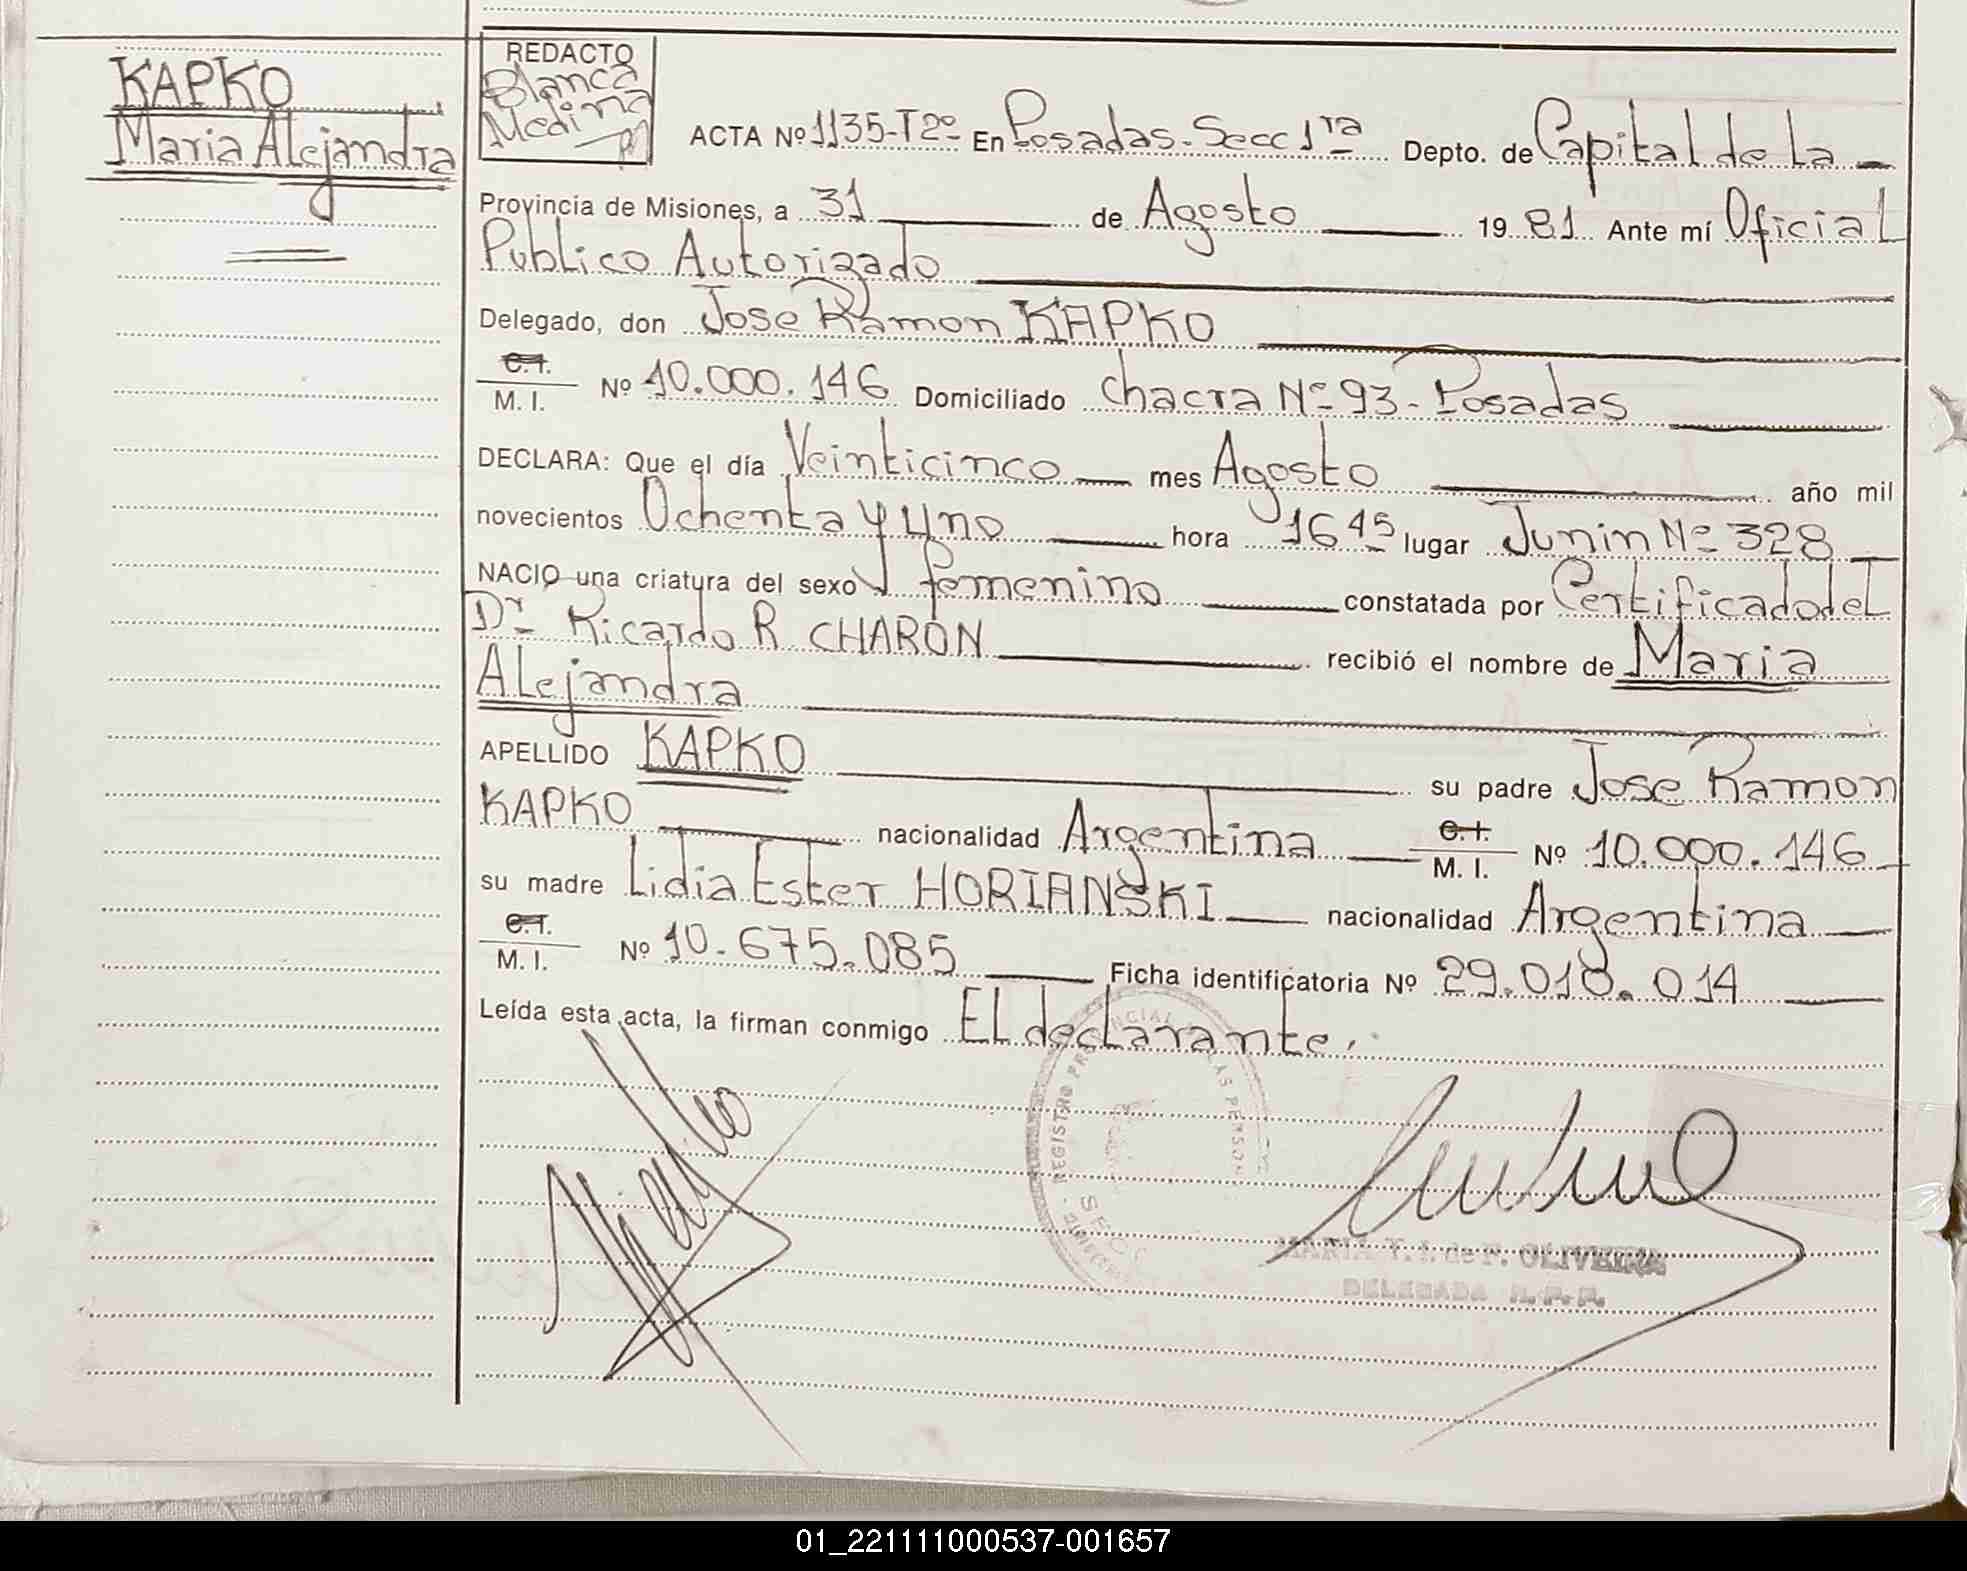 KAPKO
Maria Alejandra
REDACTO
Blanca
Medina
ACTA Nº 1135-T2º En Posadas-Secc 1ra Depto. de Capital de la
Provincia de Misiones, a 31 de Agosto 1981 Ante mí Oficial
Publico Autorizado
Delegado, don Jose Ramon KAPKO
C.I.
M. I. Nº 10.000.146 Domiciliado Chacra Nº 93-Posadas
DECLARA: Que el día Veinticinco mes Agosto año mil
novecientos Ochenta y uno hora 16 45 lugar Junin Nº 328
NACIO una criatura del sexo femenino constatada por Certificado del
Dr Ricardo R. CHARON recibió el nombre de Maria
Alejandra
APELLIDO KAPKO su padre Jose Ramon
KAPKO nacionalidad Argentina C.I. M. I. Nº 10.000.146
su madre Lidia Ester HORIANSKI nacionalidad Argentina
C.I.
M. I. Nº 10.675.085 Ficha identificatoria Nº 29.018.014
Leída esta acta, la firman conmigo El declarante.
REGISTRO PROVINCIAL LAS PERSON
MARIA T. I. de F. OLIVEIRA
DELEGADA R.P.P.
01_221111000537-001657